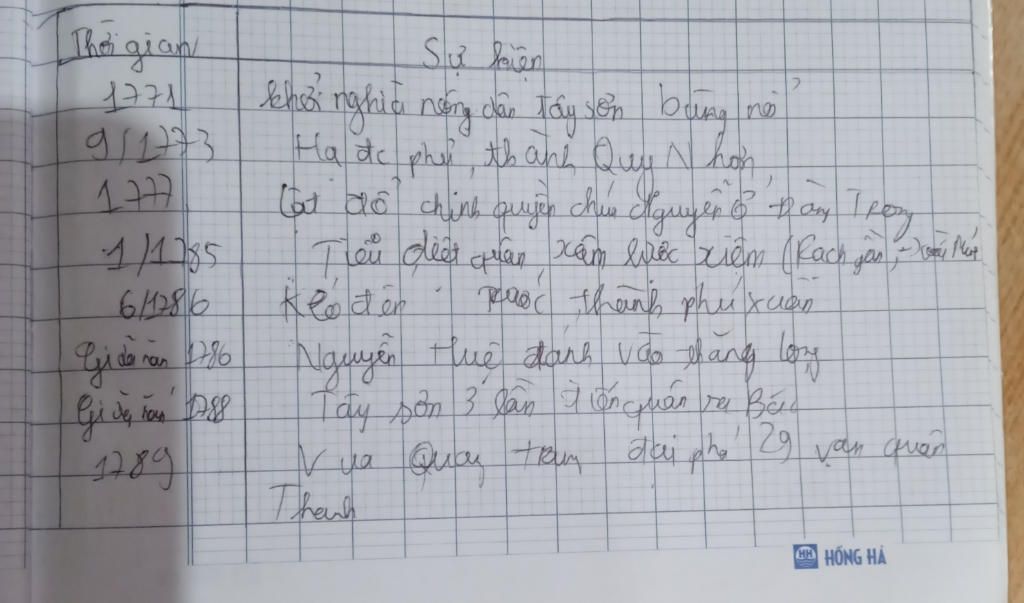 Thời gian Sự kiện
1771 khởi nghĩa nông dân Tây sơn bùng nổ
9/1773 Hạ đc phủ thành Quy Nhơn
1777 Lật đổ chính quyền chúa Nguyễn ở Đàng Trong
1/1785 Tiêu diệt quân xâm lược xiêm (Rạch gầm -
6/1786 Kéo đến thành phú xuân
1786 Nguyễn Huệ đánh vào thăng long
1788 Tây sơn 3 lần quân ra Bắc
1789 Vua Quang trung đại phá 29 vạn quân
Thanh
HH HỒNG HÀ